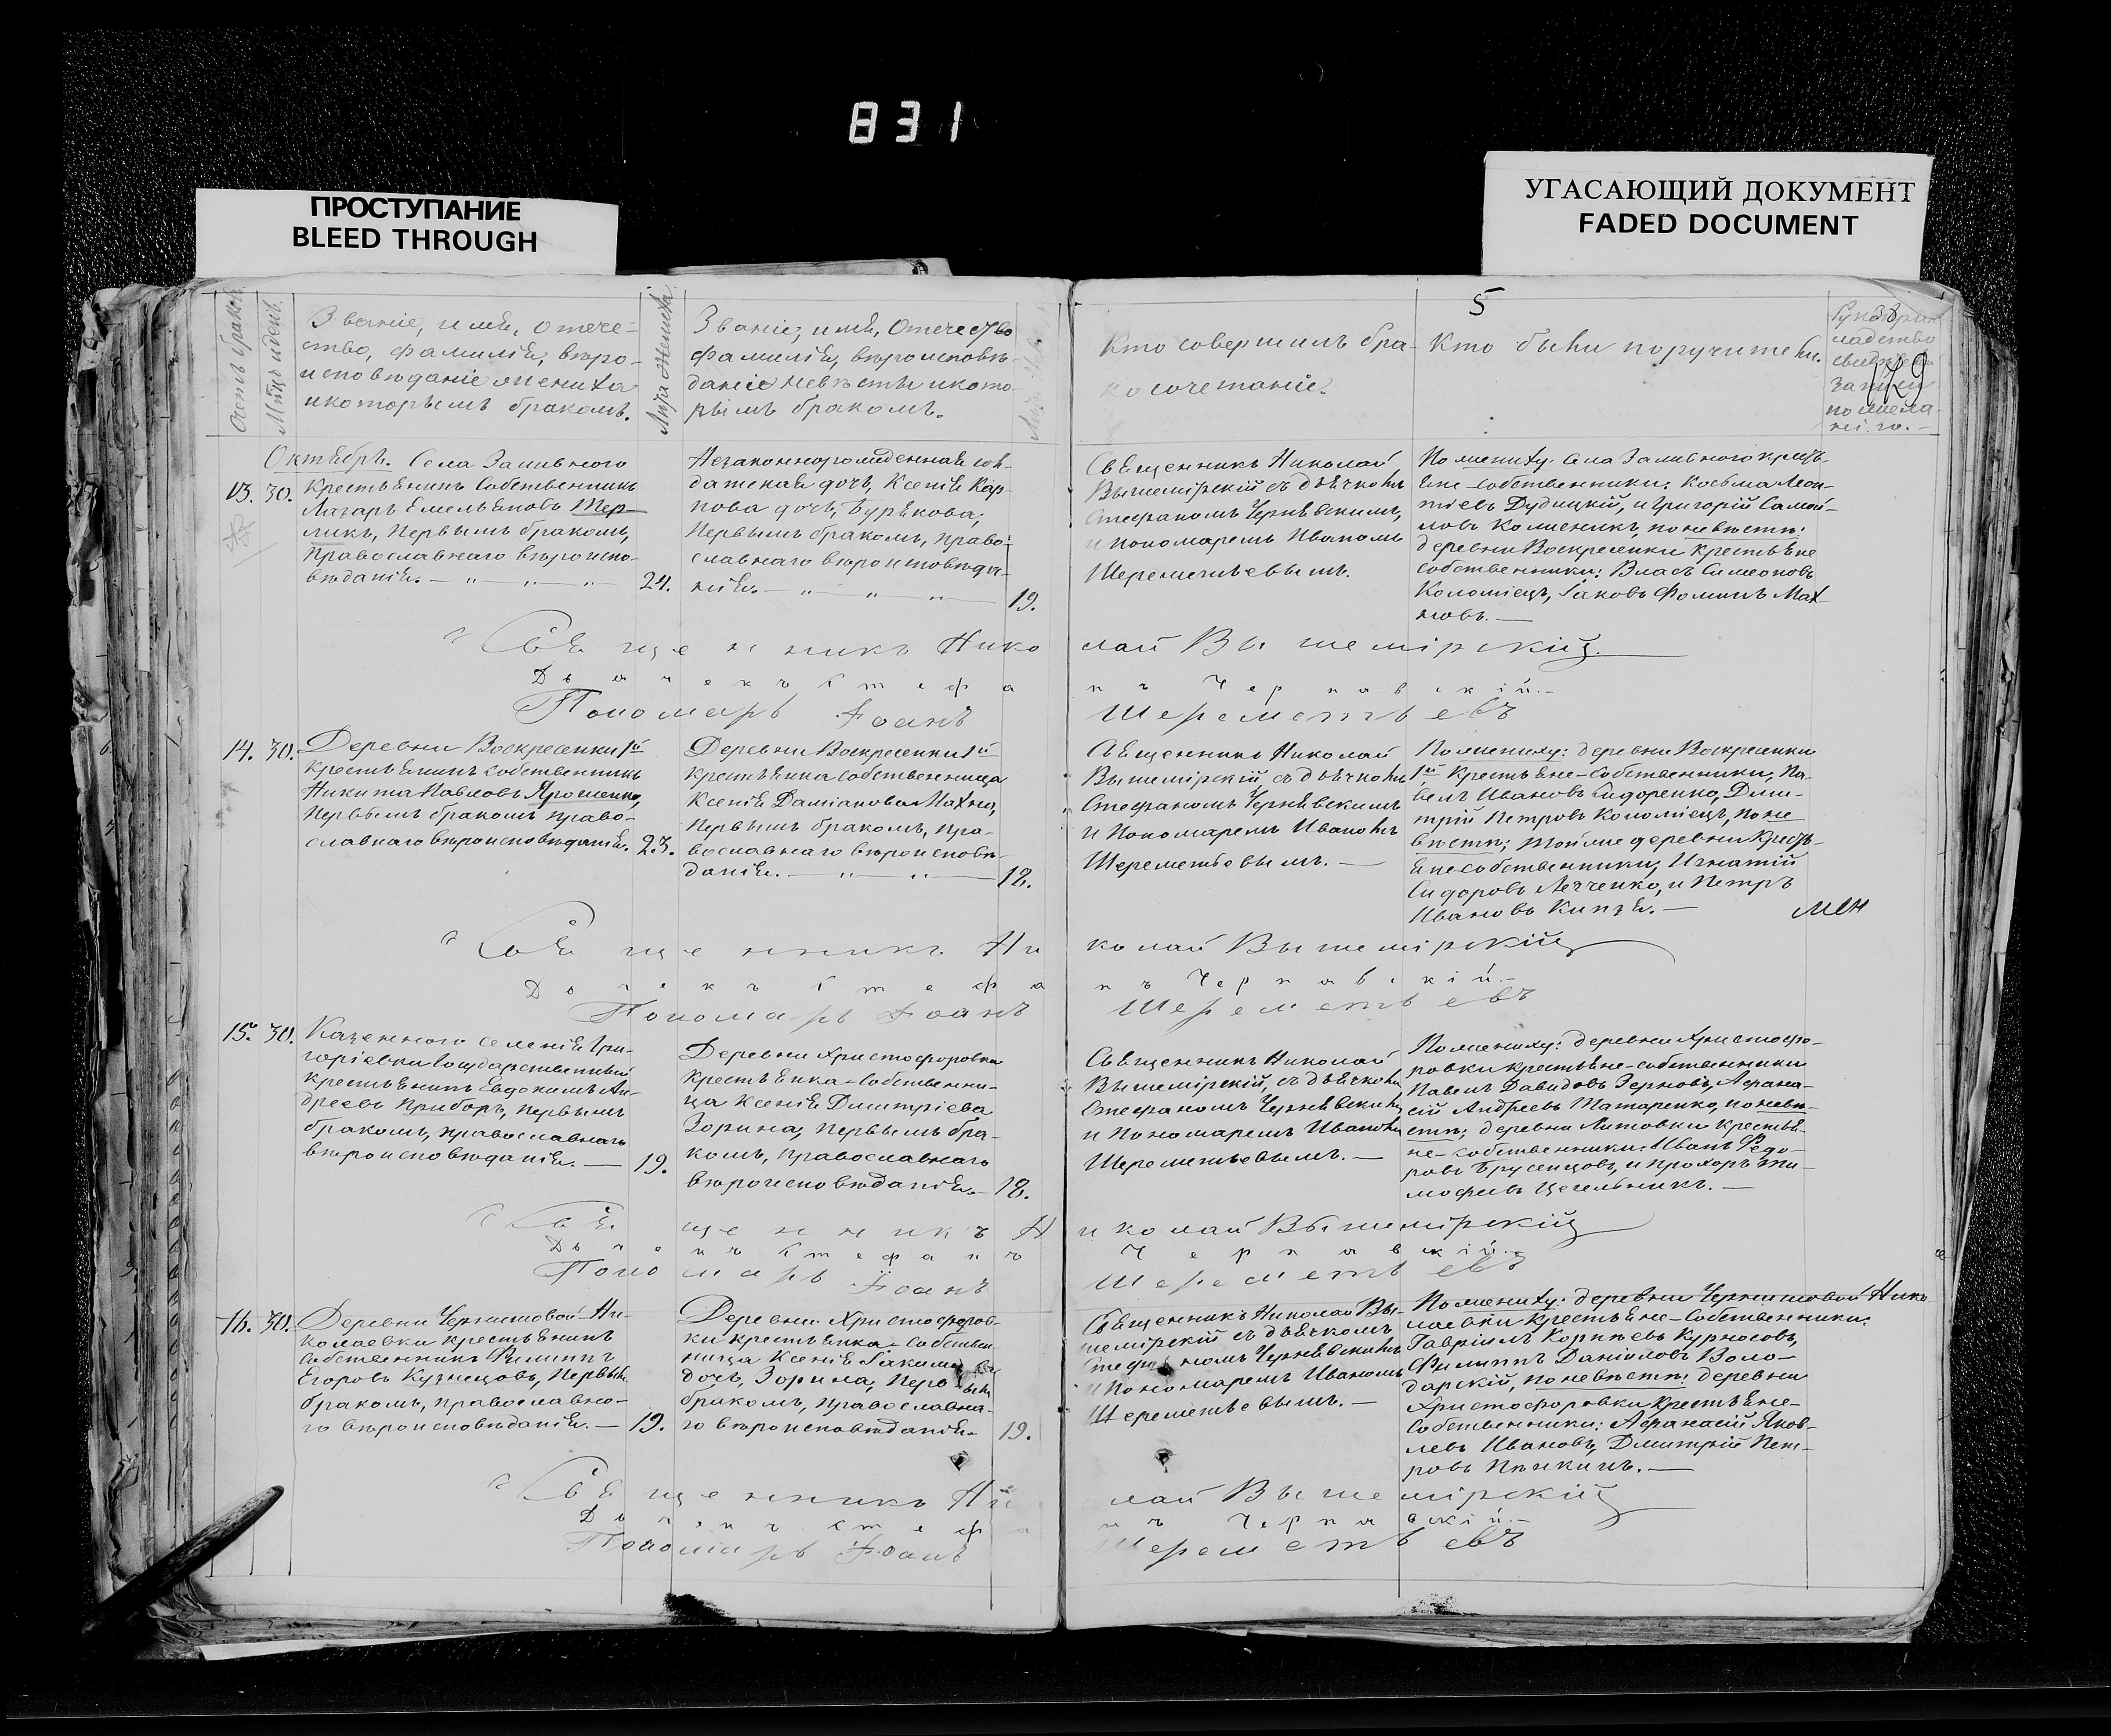 831
ПРОСТУПАНИЕ
BLEED THROUGH
УГАСАЮЩИЙ ДОКУМЕНТ
FADED DOCUMENT
5
Счетъ браковъ
Мѣсяцъ и день.
Званіе, имя, отече-
ство, фамилія, вѣро-
исповѣданіе жениха
и которымъ бракомъ.
Лѣта Жениха
Званіе, имя, отечество
фамилія, вѣроисповѣ-
даніе невѣсты и кото-
рымъ бракомъ.
Кто совершилъ бра-
косочетаніе?
Кто были поручители.
Октябрь.
13. 30.
Села Заливного
Крестьянинъ собственникъ
Лазарь Емельяновъ Тер-
ликъ, первымъ бракомъ,
православнаго вѣроиспо-
вѣданія. — „ — „ — „ —
24.
Незаконнорожденная сол-
датская дочь, Ксенія Кар-
пова дочь, Бурякова,
первымъ бракомъ, право-
славнаго вѣроисповѣда-
нія. — „ — „ — „ —
19.
Священникъ Николай
Вышемірскій съ дьячкомъ
Стефаномъ Чернявскимъ,
и пономаремъ Иваномъ
Шереметьевымъ.
По жениху: села Заливного кресть-
яне-собственники: Косьма Леон-
тіевъ Дудицкій, и Григорій Самой-
ловъ Колженикъ, по невѣстѣ:
деревни Воскресенки крестьяне
собственники: Власъ Симеоновъ
Коломіецъ, Іаковъ Фоминъ Мах-
новъ. —
Священникъ Николай Вышемірскій
Дьячекъ Стефанъ Чернавскій. —
Пономарь Іоаннъ Шереметьевъ
14. 30.
Деревни Воскресенки 1й
крестьянинъ собственникъ
Никита Павловъ Ярошенко,
первымъ бракомъ право-
славнаго вѣроисповѣданія.
23.
Деревни Воскресенки 1й
крестьянка собственница
Ксенія Даміанова Махно,
первымъ бракомъ, пра-
вославнаго вѣроисповѣ-
данія. — „ — „ —
18.
Священникъ Николай
Вышемірскій съ дьячкомъ
Стефаномъ Чернявскимъ
и Пономаремъ Иваномъ
Шереметьевымъ. —
По жениху: деревни Воскресенки
1й крестьяне-собственники, Па-
велъ Ивановъ Сидоренко, Дми-
трій Петровъ Коломіецъ, по не
вѣстѣ; той же деревни кресть-
яне собственники, Игнатій
Сидоровъ Левченко, и Петръ
Ивановъ Князя. —
Священникъ Николай Вышемірскій
Дьячекъ Стефанъ Чернавскій. —
Пономарь Іоаннъ Шереметьевъ
15. 30.
Казеннаго селенія Гри-
горіевки государственный
крестьянинъ Евдокимъ Ан-
дреевъ Приборъ, первымъ
бракомъ, православнаго
вѣроисповѣданія. —
19.
Деревни Христофоровки
крестьянка-собственни-
ца Ксенія Дмитріева
Зорина, первымъ бра-
комъ, православнаго
вѣроисповѣданія. —
18.
Священникъ Николай
Вышемірскій, съ дьячкомъ
Стефаномъ Чернявскимъ
и Пономаремъ Иваномъ
Шереметьевымъ. —
По жениху: деревни Христофо-
ровки крестьяне-собственники
Павелъ Давидовъ Зерновъ, Афана-
сій Андреевъ Татаренко, по невѣ-
стѣ; деревни Литовки крестья-
не-собственники: Иванъ Федо-
ровъ Брусенцовъ, и Прохоръ Ти-
мофеевъ Цегельникъ. —
Священникъ Николай Вышемірскій
Дьячекъ Стефанъ Чернавскій. —
Пономарь Іоаннъ Шереметьевъ
16. 30.
Деревни Чернышовой-Ни-
колаевки крестьянинъ
собственникъ Филиппъ
Егоровъ Кузнецовъ, первымъ
бракомъ, православна-
го вѣроисповѣданія. —
19.
Деревни Христофоров-
ки крестьянка-собствен
ница Ксенія Іакова
дочь, Зорина, первымъ
бракомъ, православна-
го вѣроисповѣданія.
19.
Священникъ Николай Вы-
шемірскій съ дьячкомъ
Стефаномъ Чернявскимъ
и Пономаремъ Иваномъ
Шереметьевымъ. —
По жениху: деревни Чернышовой Нико
лаевки крестьяне-собственники:
Гавріилъ Корнѣевъ Курносовъ,
Филиппъ Даніиловъ Воло-
дарскій, по невѣстѣ: деревни
Христофоровки крестьяне-
собственники: Афанасій Яков-
левъ Ивановъ, Дмитрій Пет-
ровъ Пѣнкинъ. —
Священникъ Николай Вышемірскій
Дьячекъ Стефанъ Чернавскій. —
Пономарь Іоаннъ Шереметьевъ